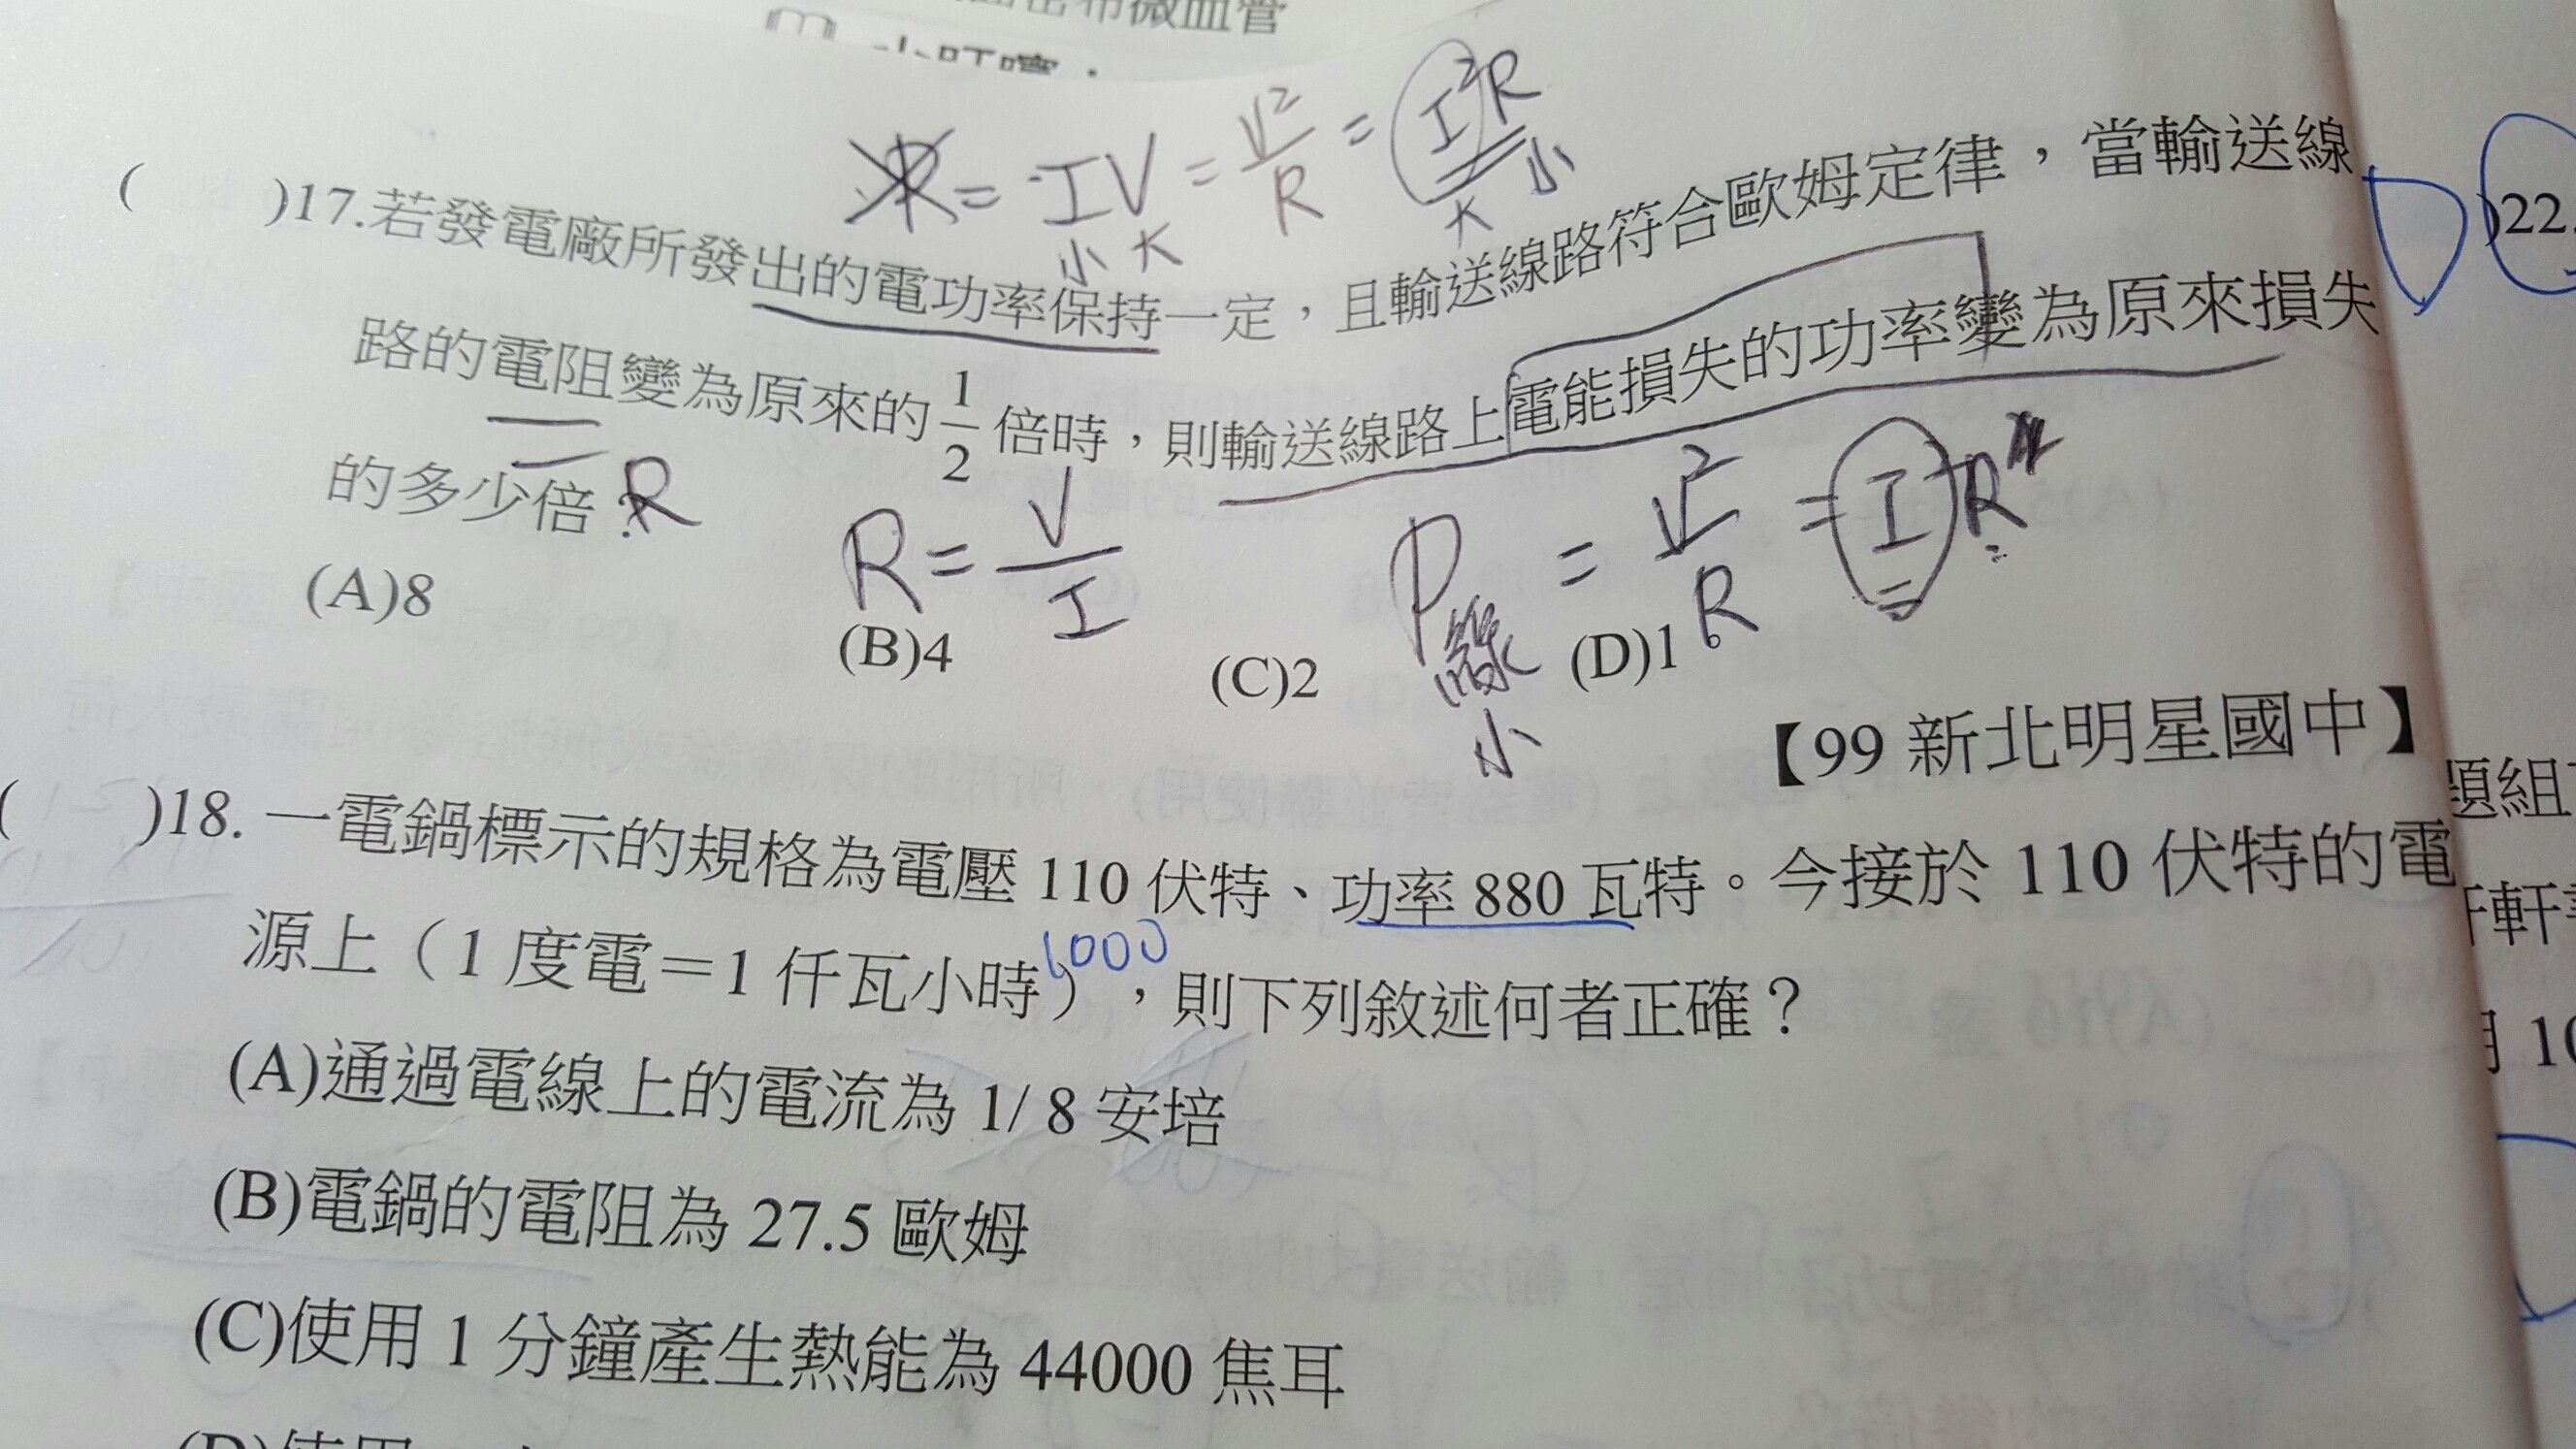 微血管
小叮嚀：
R = IV = V²/R = I²R
小 大 大 小
( )17.若發電廠所發出的電功率保持一定，且輸送線路符合歐姆定律，當輸送線
路的電阻變為原來的1/2倍時，則輸送線路上電能損失的功率變為原來損失
的多少倍？ R
R = V/I
P線 = V²/R = I²R
小
(A)8 (B)4 (C)2 (D)1。
【99 新北明星國中】
( )18. 一電鍋標示的規格為電壓 110 伏特、功率 880 瓦特。今接於 110 伏特的電
源上（1 度電＝1 仟瓦小時），則下列敘述何者正確？
1000
(A)通過電線上的電流為 1/ 8 安培
(B)電鍋的電阻為 27.5 歐姆
(C)使用 1 分鐘產生熱能為 44000 焦耳
(D)使用
)22.
題組
軒
月 10